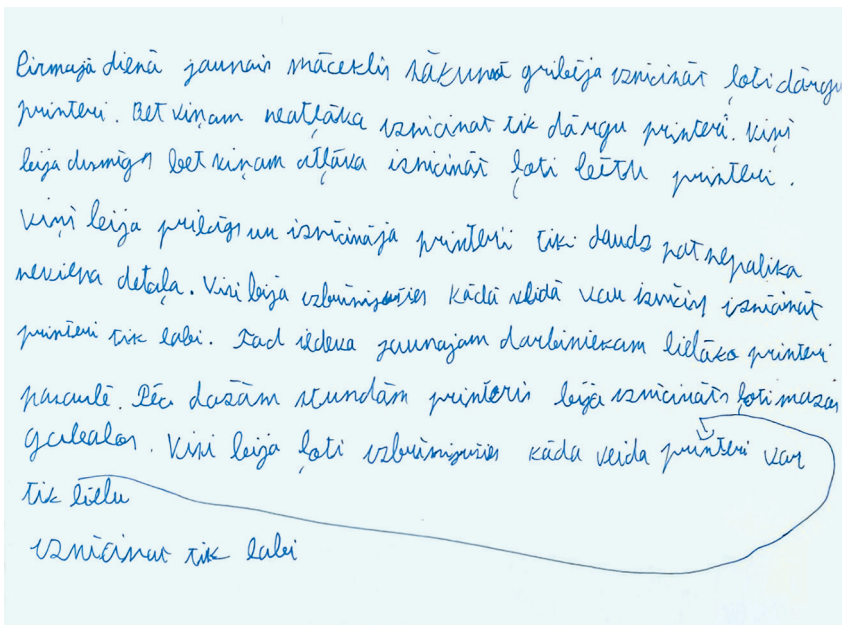 Pirmajā dienā jaunais māceklis sākumā gribēja iznīcināt ļoti dārgu
printeri. Bet viņam neatļāva iznīcinat tik dārgu printeri. Viņš
bija dusmīgs bet viņam atļāva iznīcināt ļoti lētu printeri.
Viņš bija priecīgs un iznīcināja printeri tik daudz pat nepalika
neviena detaļa. Visi bija izbrīnijušies kādā veidā var iznīcināt
printeri tik labi. Tad iedeva jaunajam darbiniekam lielāko printeri
pasaulē. Pēc dažām stundām printeris bija iznīcināts ļoti mazās
gabalos. Visi bija ļoti izbrīnijušies kāda veida printeri var
tik lielu
iznīcinat tik labi